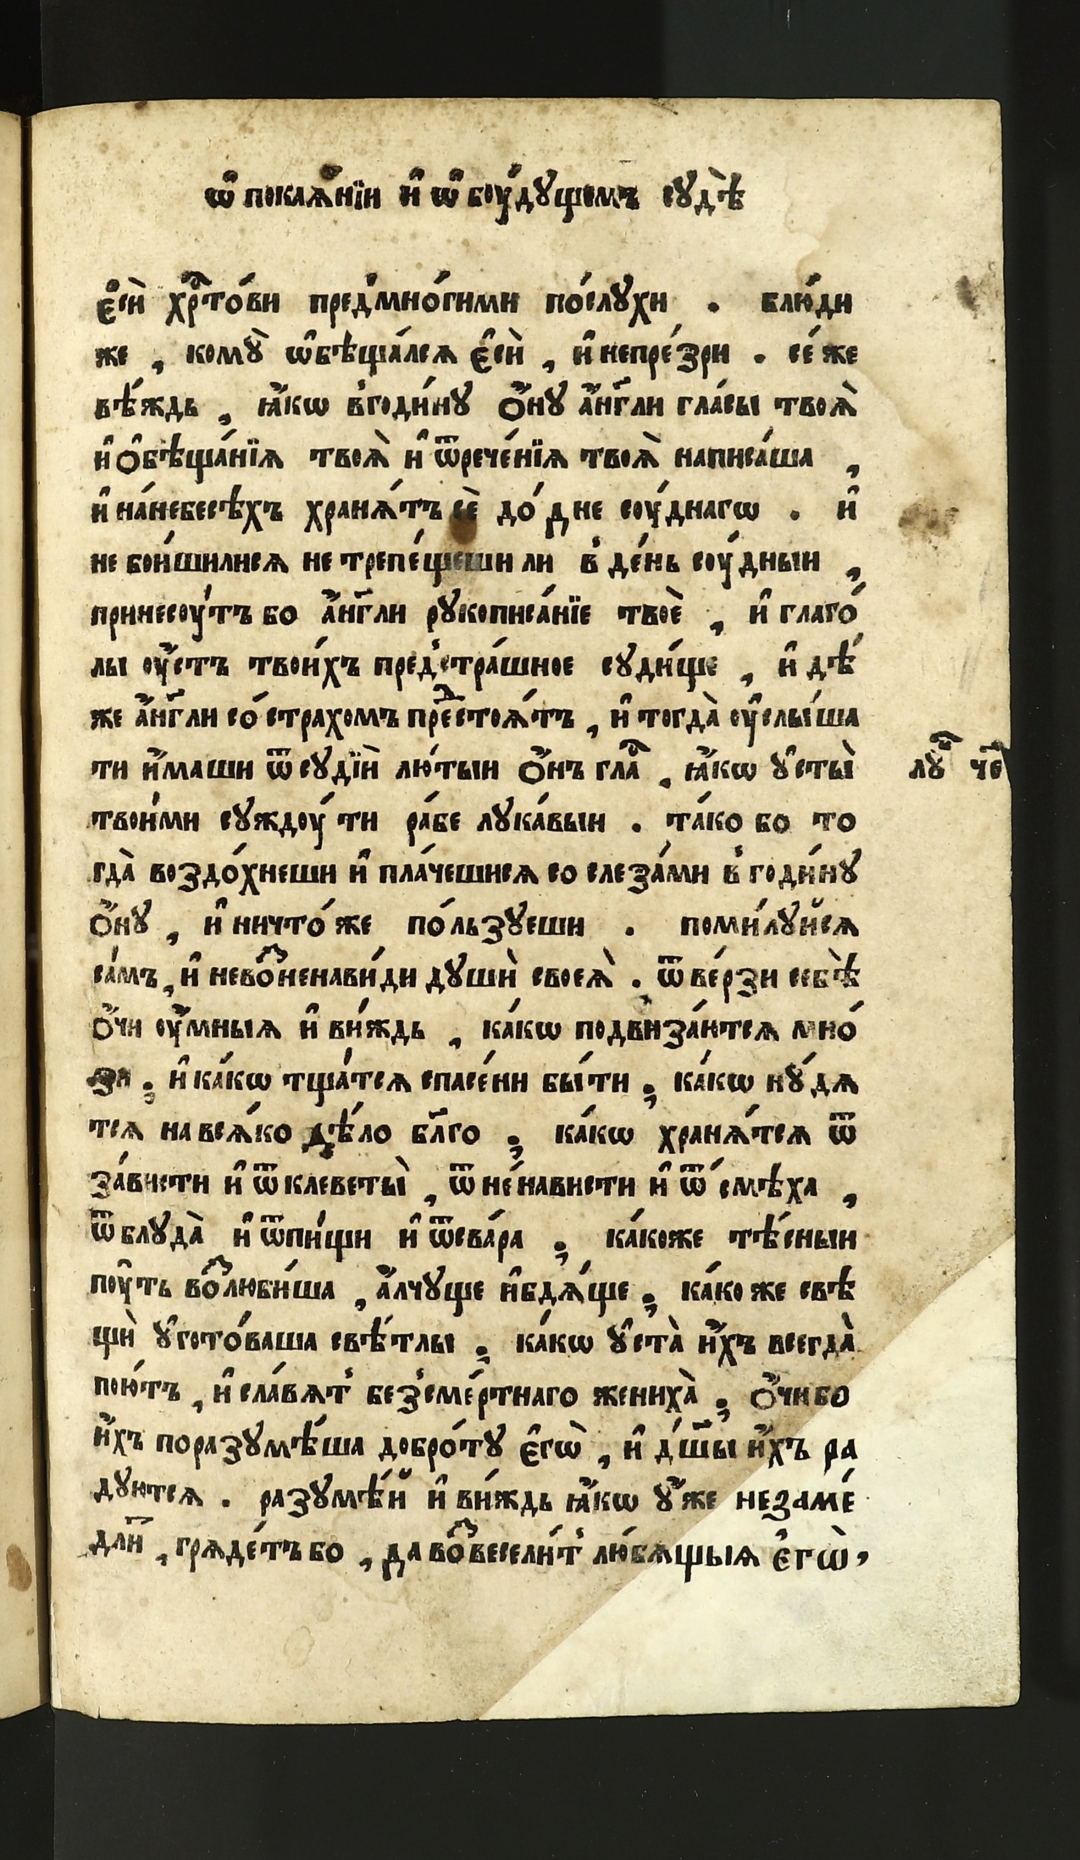 ѡ҆ покаѧ́нїи и҆ ѡ҆ боу́дꙋщемъ сꙋдѣ̀
є҆сѝ хрⷭ҇то́ви пред̾мно́гими по́слꙋхи . блюди
же , комꙋ̀ ѡ҆бѣща́лсѧ є҆сѝ , и҆ непре́зри . се́ же
вѣ́ждь , ꙗ҆́кѡ в̾годи́нꙋ о҆́нꙋ а҆́нг҃ли гла́сы твоѧ̀
и҆ о҆бѣща́нїѧ твоѧ̀ и҆ ѿрече́нїѧ твоѧ̀ написа́ша ,
и҆ на́небесѣхъ хранѧ́тъ сѐ до́ дне соу́днагѡ . и҆
не бои́шилисѧ не трепе́щеши ли в̾ де́нь соу́дныи ,
принесоу́тъ бо а҆́нг҃ли рꙋкописа́нїе твоѐ , и҆ глаго́
лы оу҆́стъ твои́хъ пред̾стра́шное сꙋди́ще , и҆ дѣ́
же а҆́нг҃ли со́ страхомъ преⷣстоѧ́тъ , и҆ тогда̀ оу҆слы́ша
ти и҆́маши ѿ сꙋдїѝ лю́тыи о҆́нъ глаⷭ҇ , ꙗ҆́кѡ ꙋ҆сты̀
твои́ми сꙋждоу́ ти ра́бе лꙋка́выи . та́ко бо то
лꙋⷦ҇ че҃
гда̀ воздо́хнеши и҆ пла́чешисѧ со слеза́ми в̾ годи́нꙋ
о҆́нꙋ , и҆ ничто́ же по́льзꙋеши . поми́лꙋйсѧ
са́мъ , и҆ невоⷥ҇ненави́ди дꙋшѝ своеѧ̀ . ѿве́рзи себѣ̀
о҆́чи оу҆́мныѧ и҆ ви́ждь , ка́кѡ подвиза́ютсѧ мно́
зи ; и҆ ка́кѡ тща́тсѧ спасе́ни бы́ти ; ка́кѡ нꙋ́дѧ
тсѧ на всѧ́ко дѣ́ло бл҃го ; ка́кѡ хранѧ́тсѧ ѿ
за́висти и҆ ѿ клеветы̀ , ѿ не́нависти и҆ ѿ смѣ́ха ,
ѿ блꙋда̀ и҆ ѿпи́щи и҆ ѿсва́ра ; ка́коже тѣ́сныи
поу҆́ть воⷥ҇люби́ша , а҆́лчꙋще и҆бдѧ́ще ; ка́ко же свѣ
щѝ ꙋ҆гото́ваша свѣ́тлы ; ка́кѡ ꙋ҆ста̀ и҆́хъ всегда̀
пою́тъ , и҆ сла́вѧт̾ без̾сме́ртнаго жениха̀ ; о҆́чи бо
и҆́хъ поразꙋмѣ́ша добро́тꙋ є҆гѡ̀ , и҆ дш҃ы и҆́хъ ра
дꙋютсѧ . разꙋмѣ́й и҆ ви́ждь ꙗ҆́кѡ ꙋ҆́же незаме́
длиⷮ , грѧде́тъ бо , да воⷥ҇весели́т̾ лю́бѧщыѧ є҆гѡ̀ ,